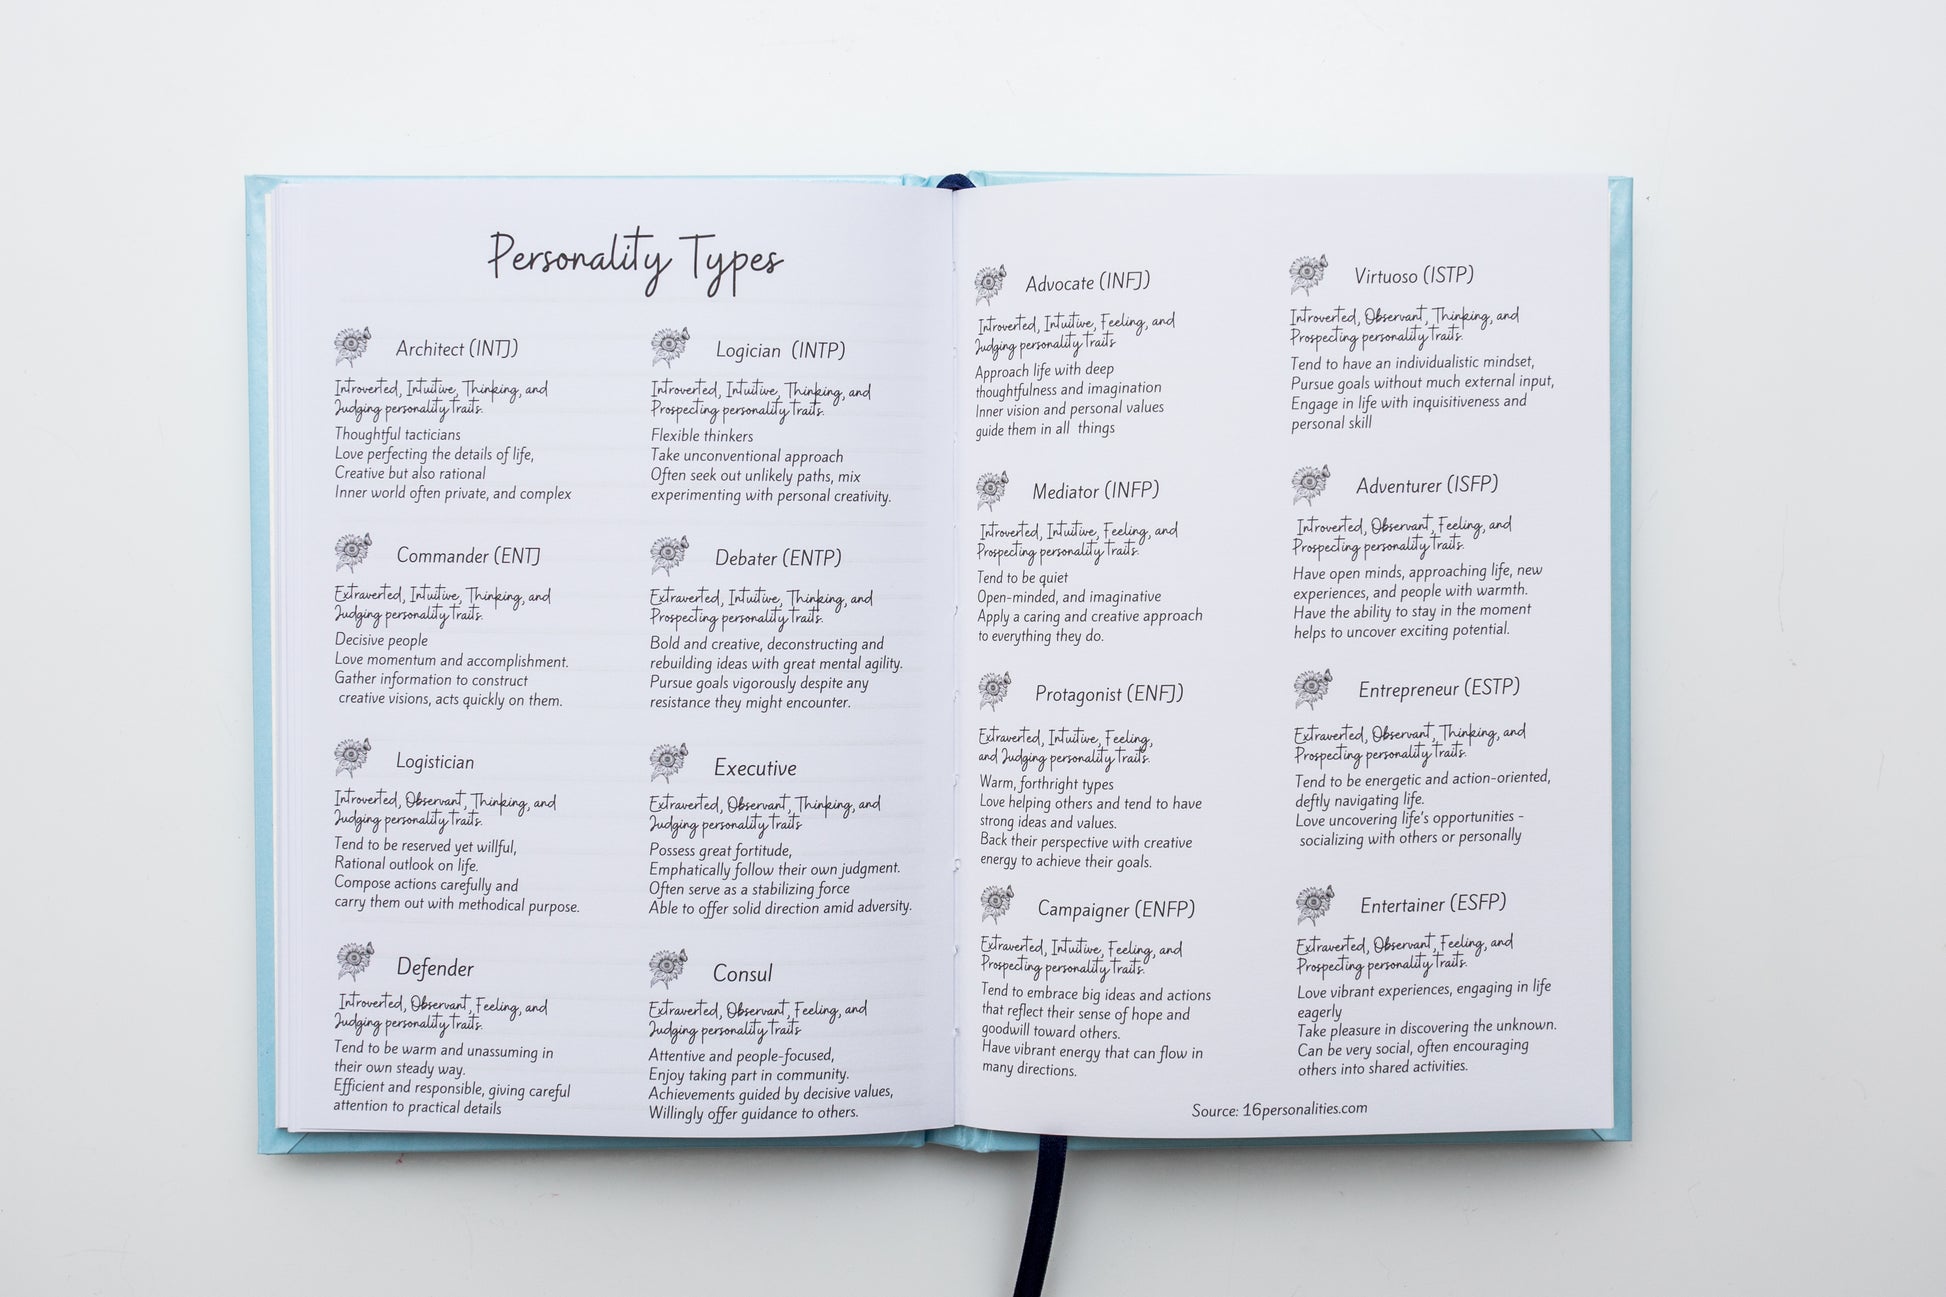 Personality Types
Architect (INTJ)
Introverted, Intuitive, Thinking, and
Judging personality traits.
Thoughtful tacticians
Love perfecting the details of life,
Creative but also rational
Inner world often private, and complex
Commander (ENTJ
Extraverted, Intuitive, Thinking, and
Judging personality traits.
Decisive people
Love momentum and accomplishment.
Gather information to construct
creative visions, acts quickly on them.
Logistician
Introverted, Observant, Thinking, and
Judging personality traits.
Tend to be reserved yet willful,
Rational outlook on life.
Compose actions carefully and
carry them out with methodical purpose.
Defender
Introverted, Observant, Feeling, and
Judging personality traits.
Tend to be warm and unassuming in
their own steady way.
Efficient and responsible, giving careful
attention to practical details
Logician (INTP)
Introverted, Intuitive, Thinking, and
Prospecting personality traits.
Flexible thinkers
Take unconventional approach
Often seek out unlikely paths, mix
experimenting with personal creativity.
Debater (ENTP)
Extraverted, Intuitive, Thinking, and
Prospecting personality traits.
Bold and creative, deconstructing and
rebuilding ideas with great mental agility.
Pursue goals vigorously despite any
resistance they might encounter.
Executive
Extraverted, Observant, Thinking, and
Judging personality traits
Possess great fortitude,
Emphatically follow their own judgment.
Often serve as a stabilizing force
Able to offer solid direction amid adversity.
Consul
Extraverted, Observant, Feeling, and
Judging personality traits
Attentive and people-focused,
Enjoy taking part in community.
Achievements guided by decisive values,
Willingly offer guidance to others.
Advocate (INFJ)
Introverted, Intuitive, Feeling, and
Judging personality traits
Approach life with deep
thoughtfulness and imagination
Inner vision and personal values
guide them in all things
Mediator (INFP)
Introverted, Intuitive, Feeling, and
Prospecting personality traits.
Tend to be quiet
Open-minded, and imaginative
Apply a caring and creative approach
to everything they do.
Protagonist (ENFJ)
Extraverted, Intuitive, Feeling,
and Judging personality traits.
Warm, forthright types
Love helping others and tend to have
strong ideas and values.
Back their perspective with creative
energy to achieve their goals.
Campaigner (ENFP)
Extraverted, Intuitive, Feeling, and
Prospecting personality traits.
Tend to embrace big ideas and actions
that reflect their sense of hope and
goodwill toward others.
Have vibrant energy that can flow in
many directions.
Virtuoso (ISTP)
Introverted, Observant, Thinking, and
Prospecting personality traits.
Tend to have an individualistic mindset,
Pursue goals without much external input,
Engage in life with inquisitiveness and
personal skill
Adventurer (ISFP)
Introverted, Observant, Feeling, and
Prospecting personality traits.
Have open minds, approaching life, new
experiences, and people with warmth.
Have the ability to stay in the moment
helps to uncover exciting potential.
Entrepreneur (ESTP)
Extraverted, Observant, Thinking, and
Prospecting personality traits.
Tend to be energetic and action-oriented,
deftly navigating life.
Love uncovering life's opportunities -
socializing with others or personally
Entertainer (ESFP)
Extraverted, Observant, Feeling, and
Prospecting personality traits.
Love vibrant experiences, engaging in life
eagerly
Take pleasure in discovering the unknown.
Can be very social, often encouraging
others into shared activities.
Source: 16personalities.com